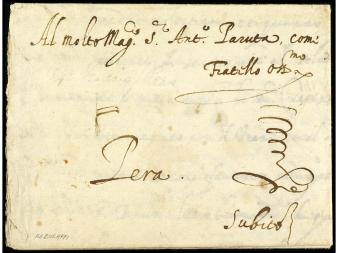 Al molto Mag.co S.r Ant.o Paruta, come
Fratello on.mo
Pera.
Subito